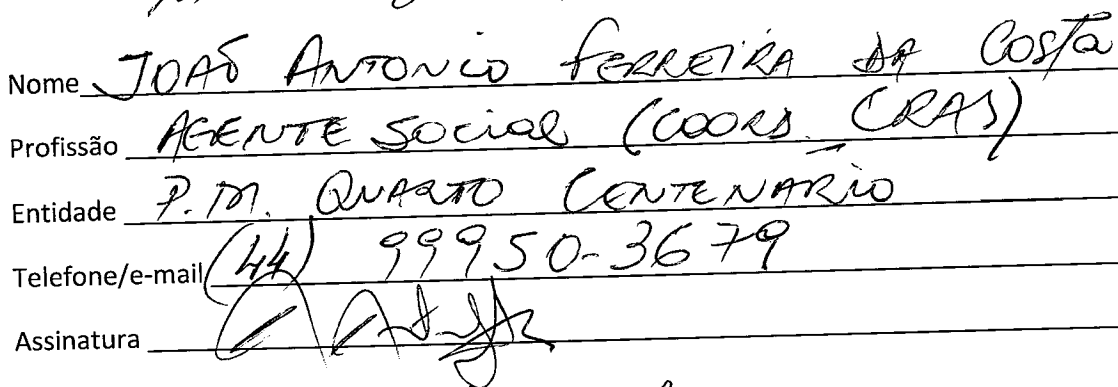 Nome JOAÕ ANTONIO FERREIRA DA Costa
Profissão AGENTE SOCIAL (COORD. CRAS)
Entidade P.M. QUARTO CENTENARIO
Telefone/e-mail (44) 99950-3679
Assinatura